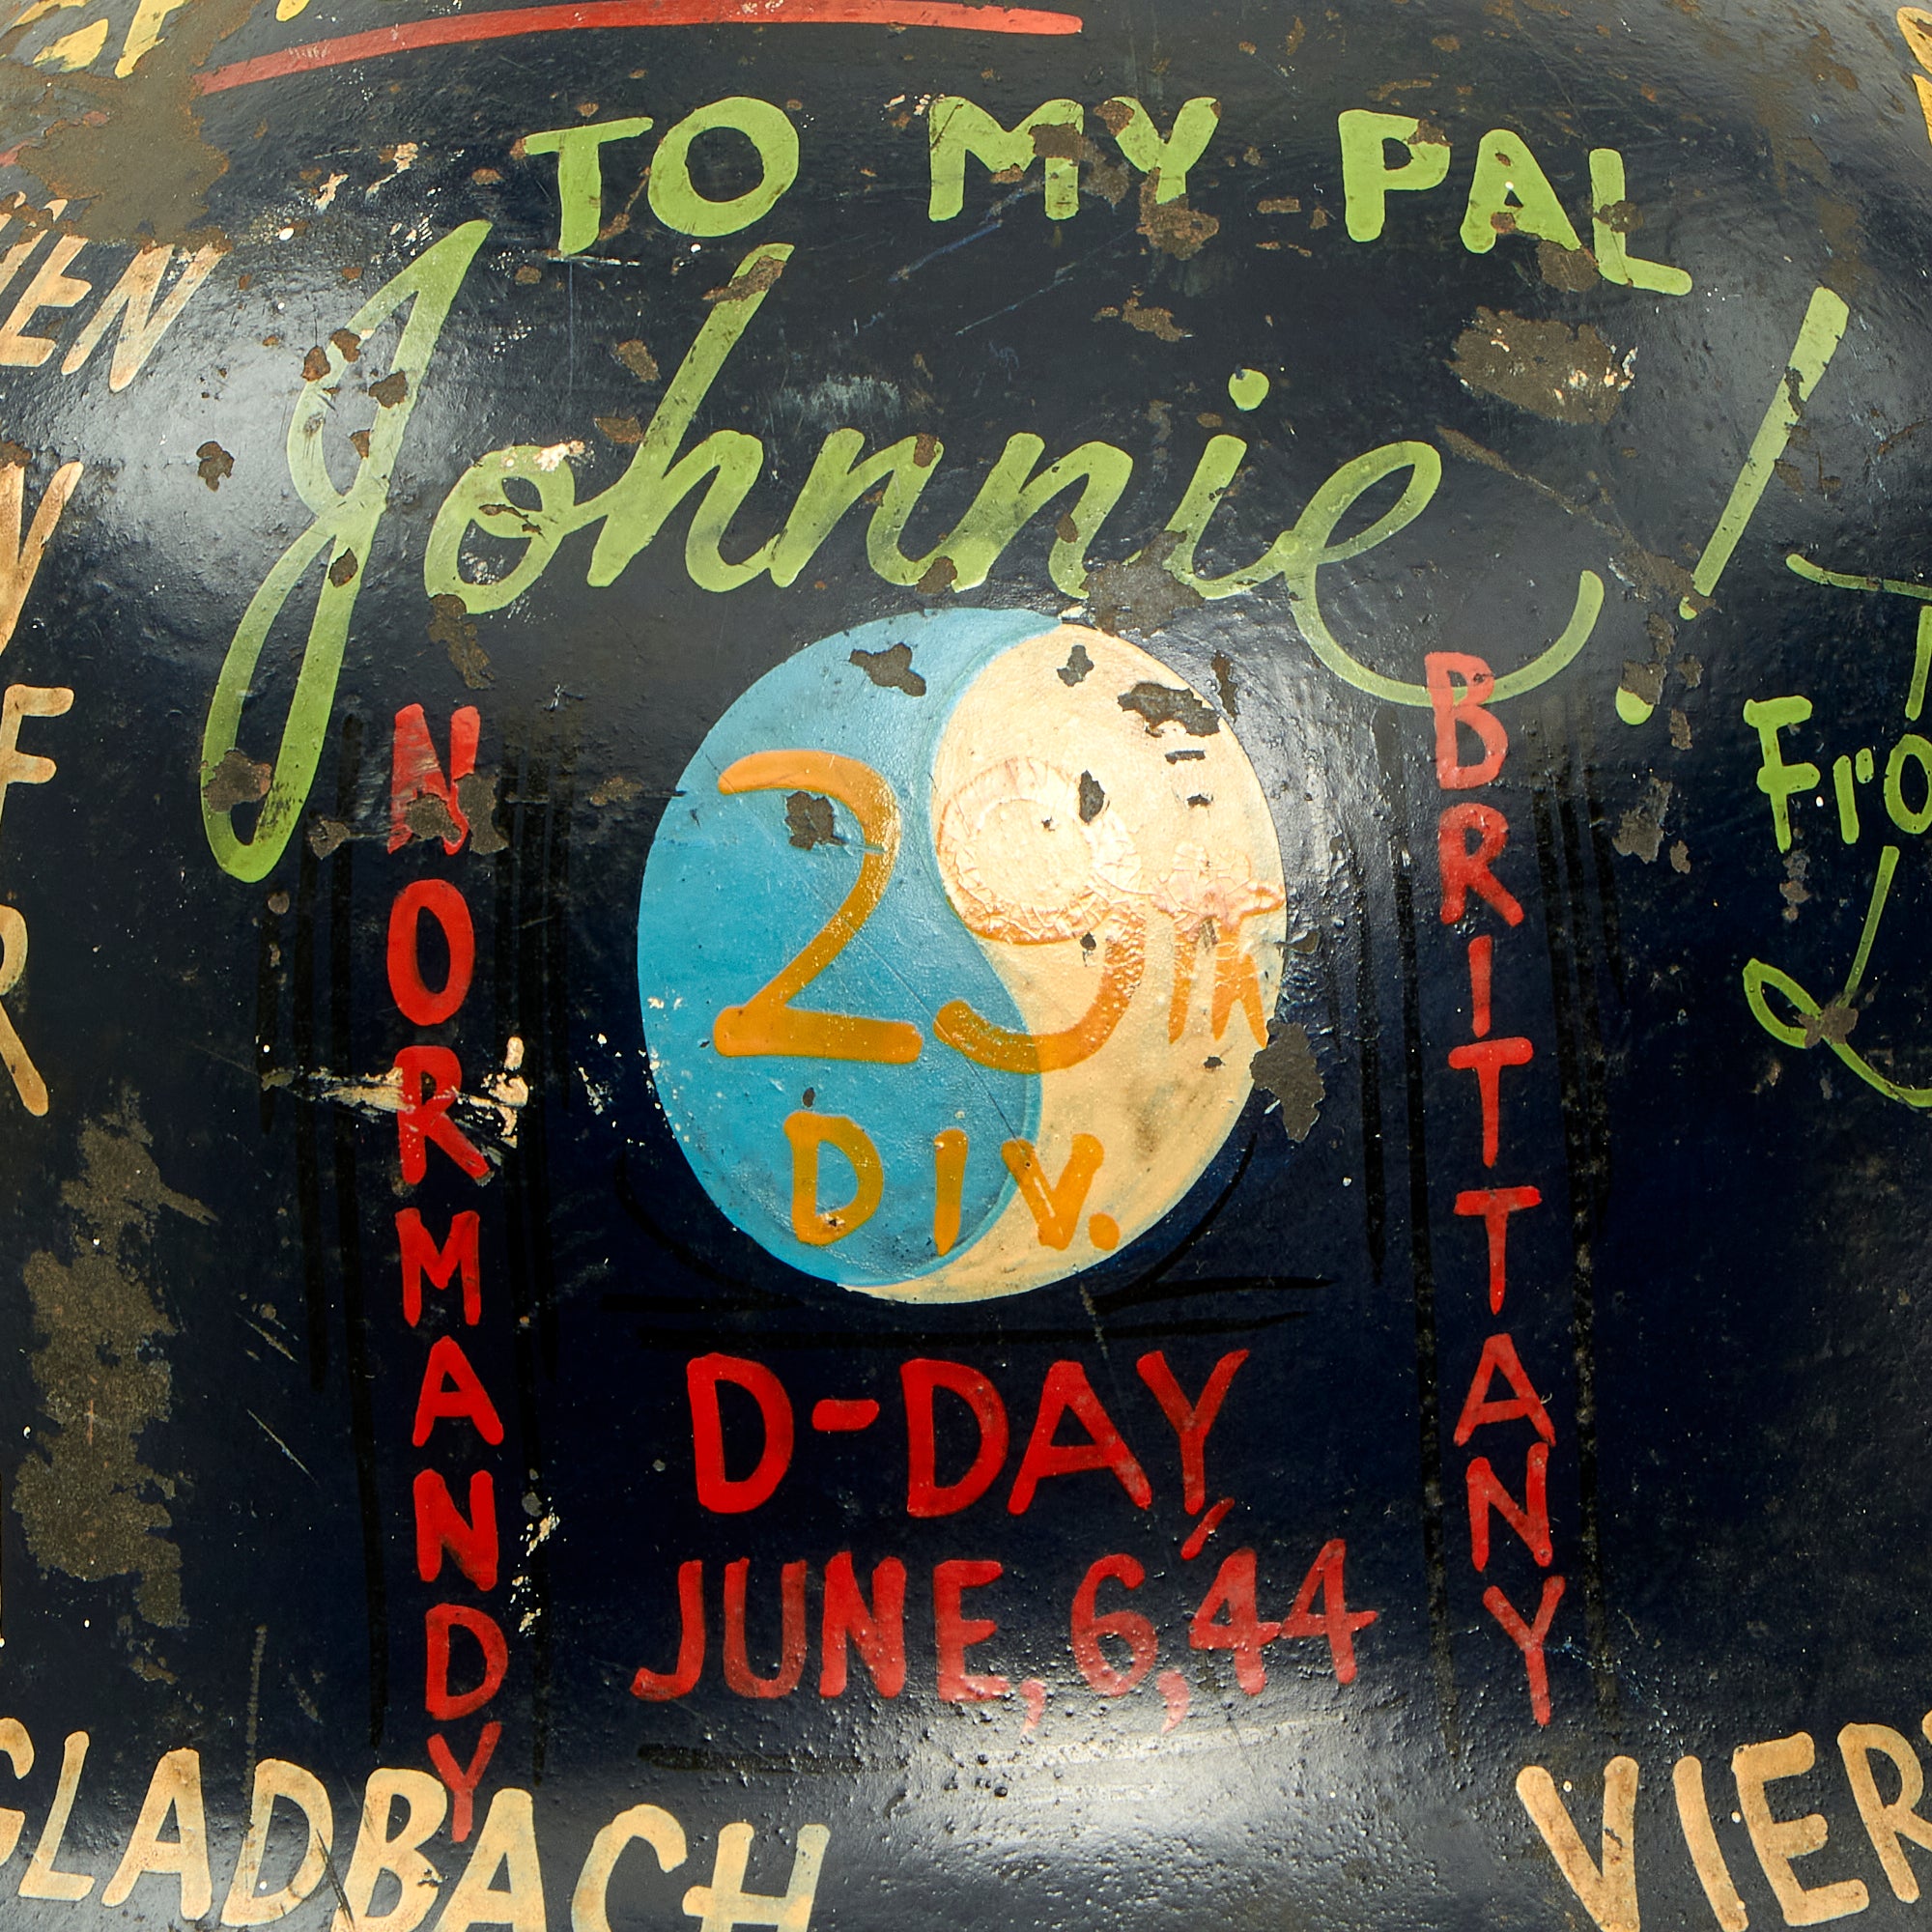 TO MY PAL
Johnnie!
NORMANDY
29TH
DIV.
BRITTANY
D-DAY
JUNE, 6, '44
GLADBACH